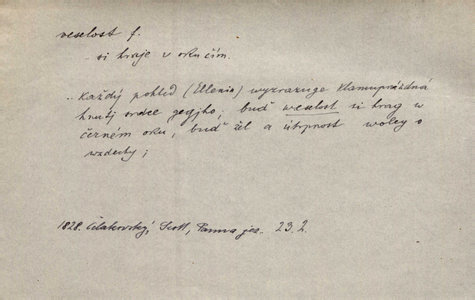 veselost f.
- si hraje v oku čím.
„Každý pohled (Ellenin) wyzrazuge klamuprázdná
hnutj srdce gegjho, buď weselost si hrag w
černém oku, buď žel a útrpnost woley o
wzdechy;
1828. Čelakovský, Scott, Panna jez. 23.2.